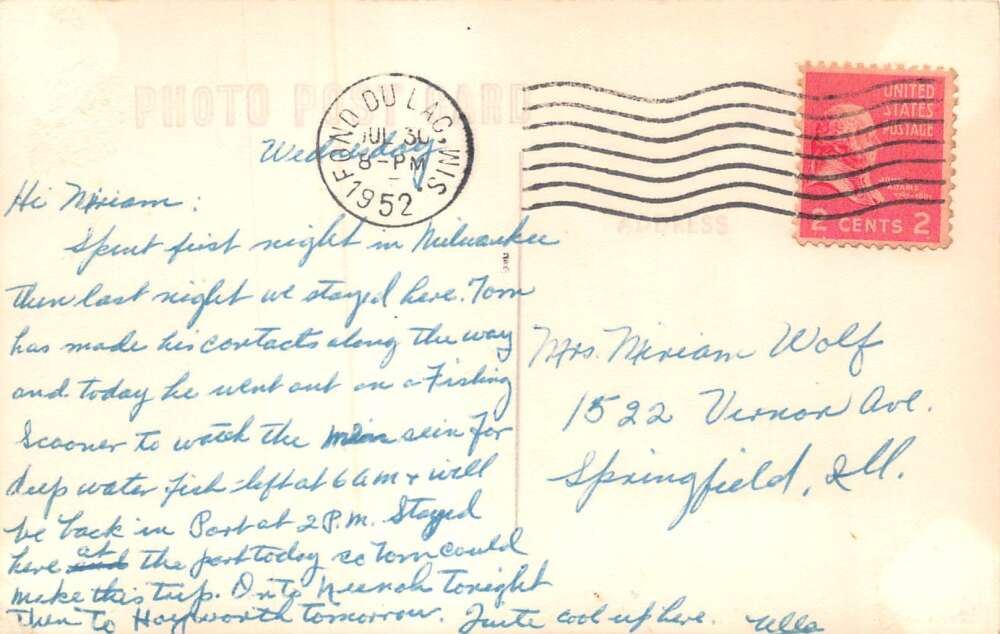 PHOTO POST CARD
FOND DU LAC, WIS
JUL 30
8-PM
1952
UNITED
STATES
POSTAGE
JOHN
ADAMS
2 CENTS 2
ADDRESS
Wednesday
Hi Miriam:
Spent first night in Milwaukee
then last night we stayed here. Tom
has made his contacts along the way
and today he went out on a Fishing
Scooner to watch the men sein for
deep water fish - left at 6 am + will
be back in Port at 2 P.M. Stayed
here at the port today so Tom could
make this trip. On to Neenah tonight
Then to Hayworth tomorrow. Quite cool up here. Ulla
Mrs. Miriam Wolf
1522 Vernon Ave.
Springfield, Ill.